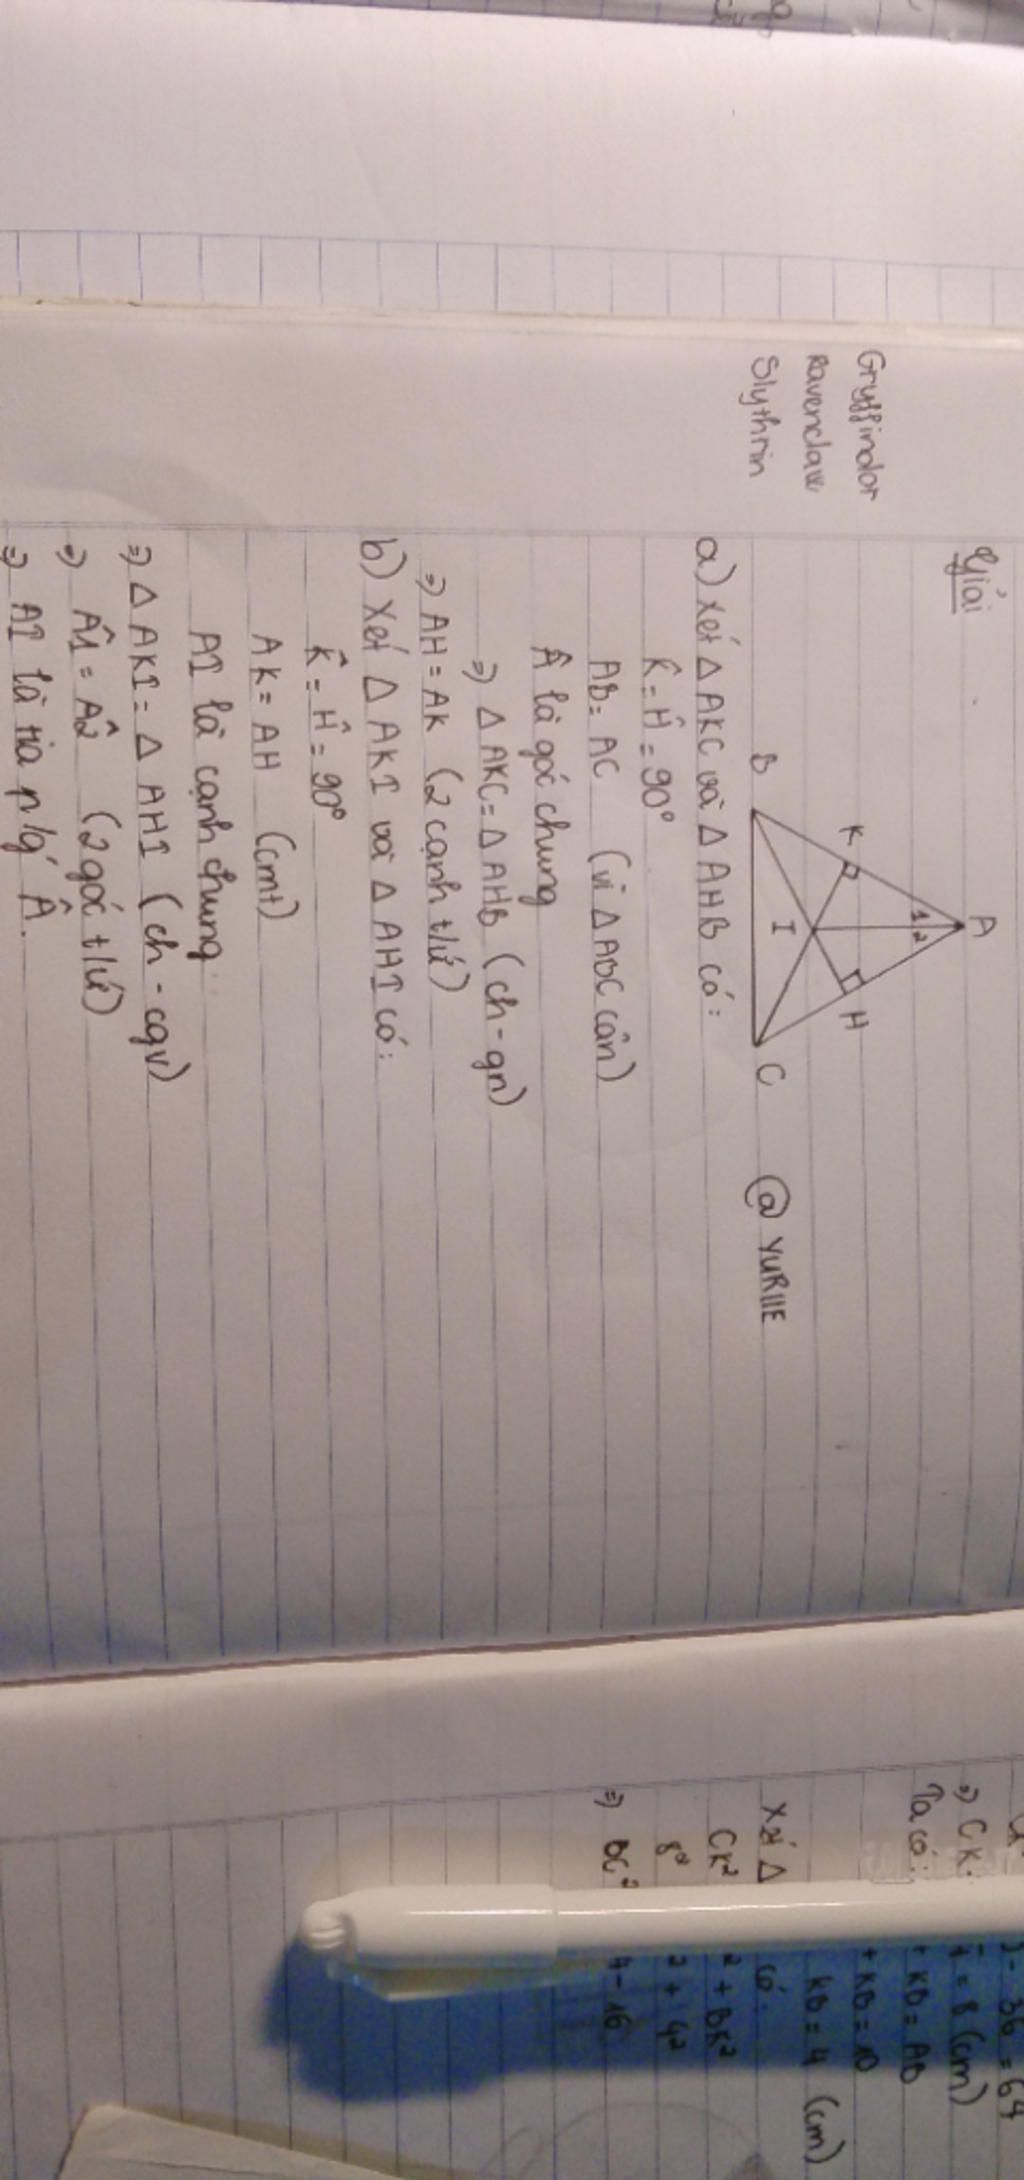 Gryffindor
Ravenclaw
Slythrin
Giải
A
1 2
K
H
I
B
C
@ YURIIE
a) Xét Δ AKC và Δ AHB có:
K̂ = Ĥ = 90°
AB = AC (vì Δ ABC cân)
Â là góc chung
=> Δ AKC = Δ AHB (ch - gn)
=> AH = AK (2 cạnh t/ứ)
b) Xét Δ AKI và Δ AHI có:
K̂ = Ĥ = 90°
AK = AH (cmt)
AI là cạnh chung
=> Δ AKI = Δ AHI (ch - cgv)
=> Â1 = Â2 (2 góc t/ứ)
=> AI là tia p/g Â.
- 36 = 64
=> CK
= 8 (cm)
Ta có:
+ KB = AB
+ KB = 10
KB = 4 (cm)
Xét Δ
có:
CK²
² + BK²
8²
² + 4²
=> BC²
- 16